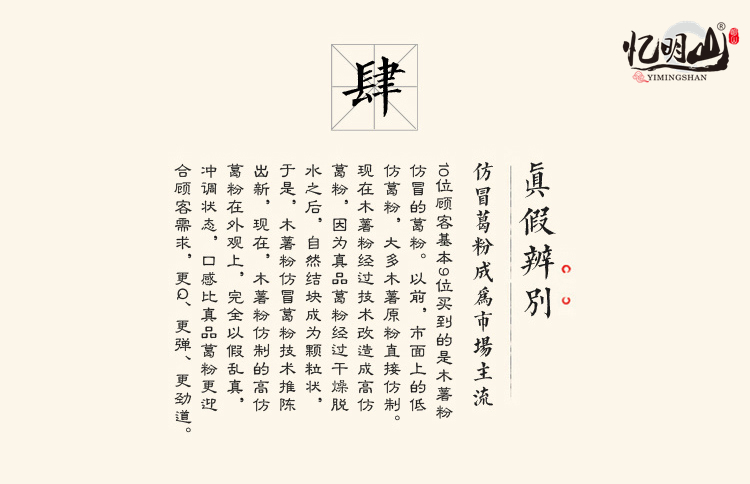 忆明山®
YIMINGSHAN
肆
真假辨别
仿冒葛粉成为市場主流
10位顾客基本9位买到的是木薯粉
仿冒的葛粉。以前，市面上的低
仿葛粉，大多木薯原粉直接仿制。
现在木薯粉经过技术改造成高仿
葛粉，因为真品葛粉经过干燥脱
水之后，自然结块成为颗粒状，
于是，木薯粉仿冒葛粉技术推陈
出新，现在，木薯粉仿制的高仿
葛粉在外观上，完全以假乱真，
冲调状态，口感比真品葛粉更迎
合顾客需求，更Q、更弹、更劲道。